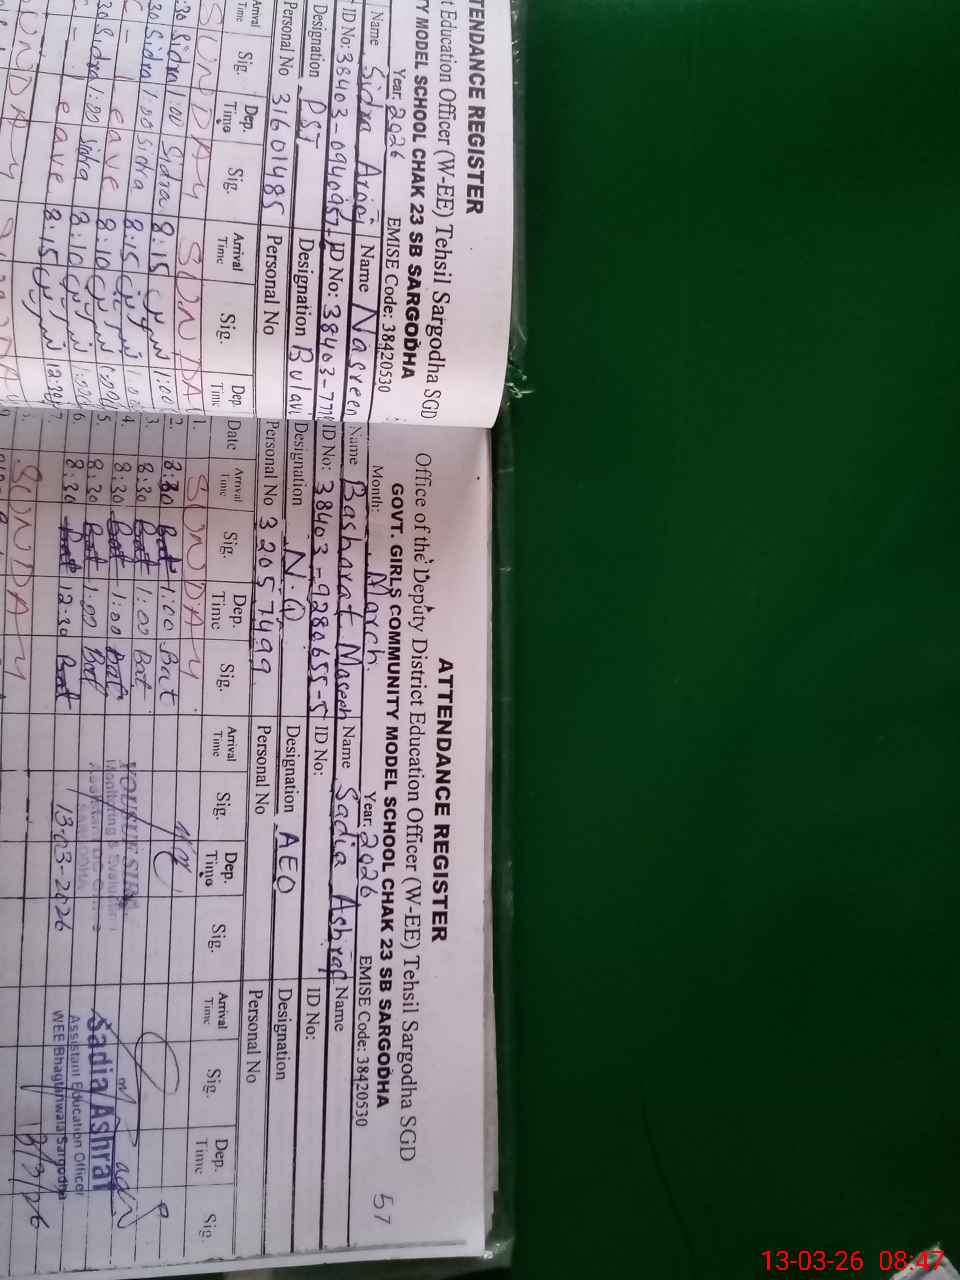 TENDANCE REGISTER
t Education Officer (W-EE) Tehsil Sargodha SGD
TY MODEL SCHOOL CHAK 23 SB SARGODHA
Year: 2026 EMISE Code: 38420530
Name Sidra Name Nasreen
ID No: 38403-0940957- ID No: 38403-771
Designation PST Designation
Personal No 31601485 Personal No
Arrival Time Sig. Dep. Time Sig. Arrival Time Sig. Dep. Time
SUNDAY SUNDAY
:30 Sidra 1:00 Sidra 8:15 نسرین 1:00
:30 Sidra 1:00 Sidra 8:15 نسرین
eave 8:10 نسرین 1:00
30 Sidra 1:00 Sidra 8:10 نسرین 1:00
eave 8:15 نسرین 12:30
ATTENDANCE REGISTER
Office of the Deputy District Education Officer (W-EE) Tehsil Sargodha SGD
GOVT. GIRLS COMMUNITY MODEL SCHOOL CHAK 23 SB SARGODHA
Month: March. Year: 2026 EMISE Code: 38420530
57
Name Basharat Maseeh Name Sadia Ashraf Name
ID No: 38403-9280655-5 ID No: ID No:
Designation N.Q Designation AEO Designation
Personal No 32057499 Personal No Personal No
Date Arrival Time Sig. Dep. Time Sig. Arrival Time Sig. Dep. Time Sig. Arrival Time Sig. Dep. Time Sig.
1. SUNDAY
2. 8:30 Bat 1:00 Bat
3. 8:30 Bat 1:00 Bat
4. 8:30 Bat 1:00 Bat
5. 8:30 Bat 1:00 Bat
6. 8:30 Bat 12:30 Bat
7.
SUNDAY
Monitoring & Evaluation
13-03-2026
Sadia Ashraf
Assistant Education Officer
WEE Bhagtanwala Sargodha
13/3/26
13-03-26 08:47